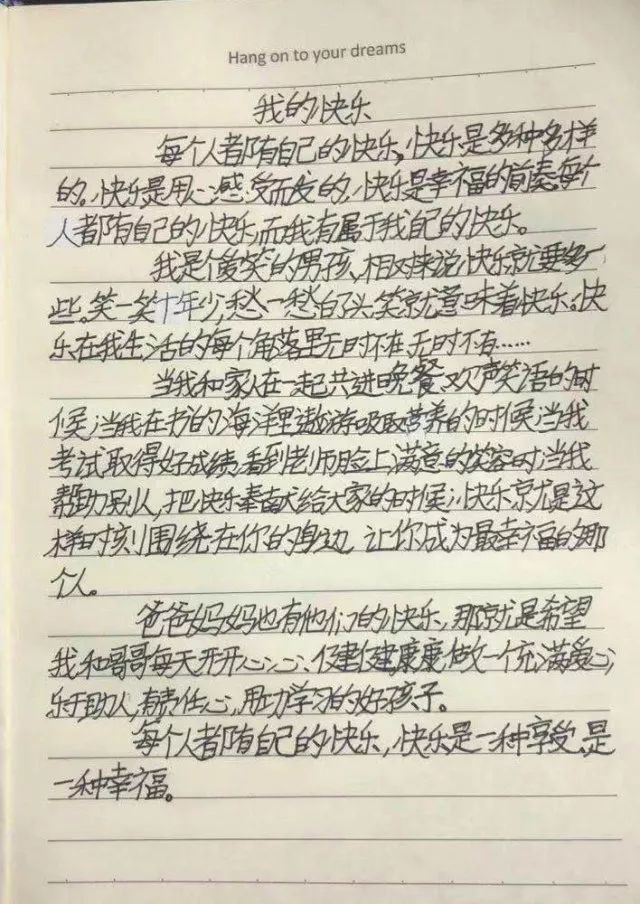 Hang on to your dreams
我的快乐
每个人都有自己的快乐,快乐是多种多样
的。快乐是用心感受而发的,快乐是幸福的前奏。每个
人都有自己的快乐,而我有属于我自己的快乐。
我是个爱笑的男孩,相对来说快乐就要多一
些。笑一笑十年少,愁一愁白了头,笑就意味着快乐。快
乐在我生活的每个角落里无时不在,无时不有……
当我和家人在一起共进晚餐,欢声笑语的时
候;当我在书的海洋里遨游吸取营养的时候;当我
考试取得好成绩,看到老师脸上满意的笑容时;当我
帮助别人,把快乐奉献给大家的时候;快乐就是这
样时刻围绕在你的身边,让你成为最幸福的那
个人。
爸爸妈妈也有他们的快乐,那就是希望
我和哥哥每天开开心心、健健康康,做一个充满爱心,
乐于助人,有责任心,用功学习的好孩子。
每个人都有自己的快乐,快乐是一种享受,是
一种幸福。